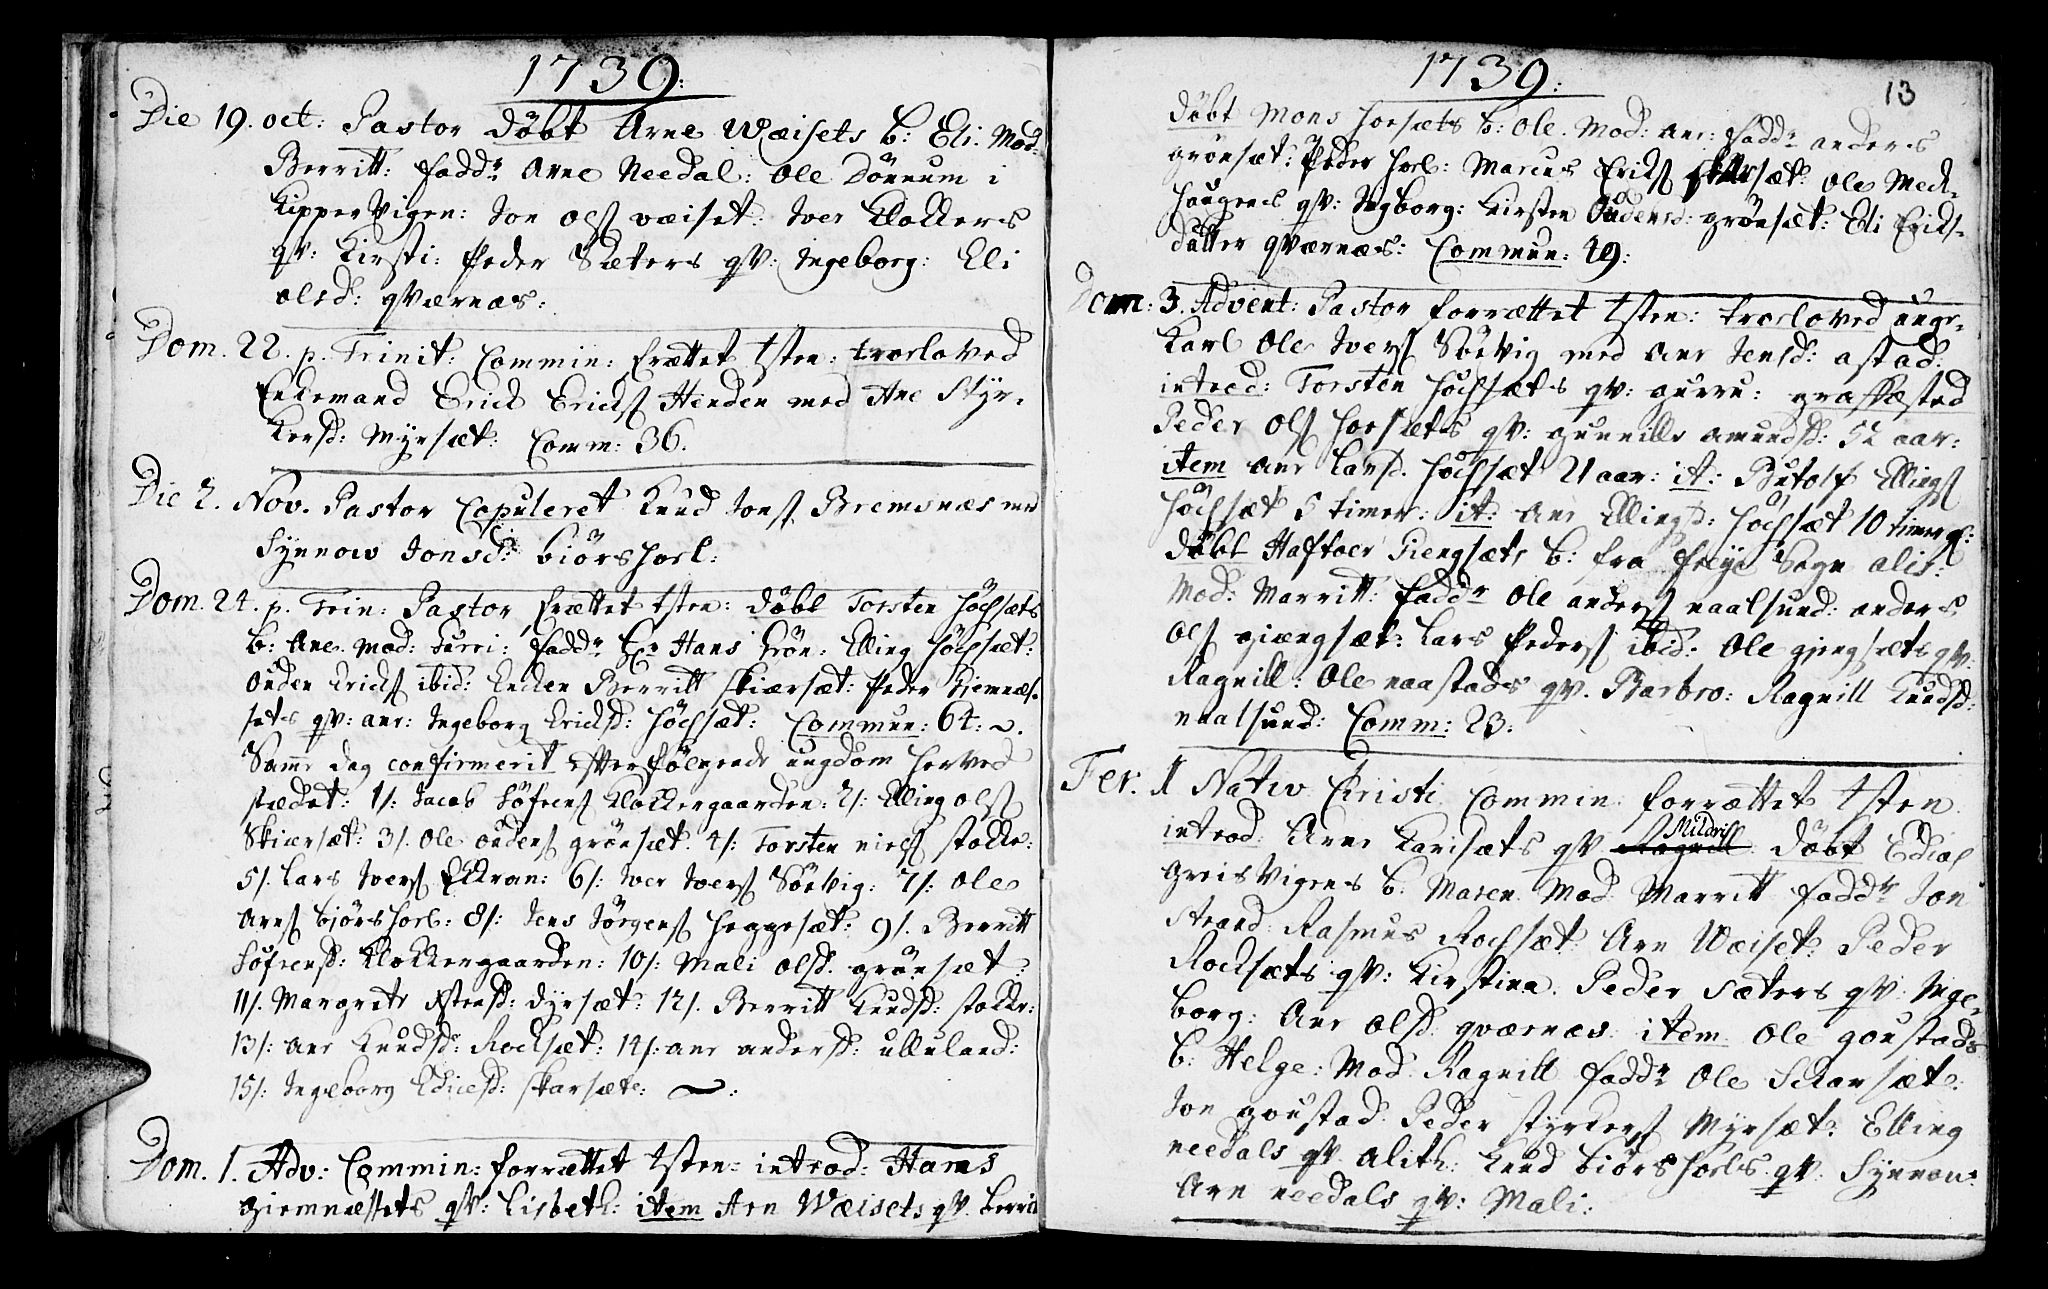 1739:
Die 19. oct: Pastor döbt Arne Wæisets b: Eli. Mod:
Berritt: fadd: Arne Needal: Ole Dönnum i
KipperVigen: Jon Ols wæiset: Iver Klockers
qv: Kirsti: Peder Sæters qv: Ingeborg: Eli
olsd: qværnæs:
Dom. 22. p. Trinit: Commin: frættet tsten: troeloved
Enkemand Erick Ericks Henden med Ane Styr-
kersd: Myrsæt: Comm: 36.
Die 2. Nov. Pastor Copuleret Knud Jons Bremsnæs med
Synnow Jonsd: biörshorl:
Dom. 24. p. Trin: Pastor frættet tsten: döbt Torsten Höchsæts
b: Ane. Mod: Turri: fadd: Hans Grön: Elling Höchsæt:
Ouden Ericks ibid: Encken Berritt Skiærsæt: Peder Giemnæs-
sets qv: ane: Ingeborg Ericksd: Höchsæt: Commun: 64:
Samme dag confirmerit efterfölgende ungdom herved
stædet: 1/: Jacob Söfrens Klockergaarden: 2/: Elling ols
Skiærsæt: 3/. Ole oudens grönsæt. 4/: Torsten niels stocke:
5/. Lars Ivers Eckran: 6/: Iver Ivers Sörvig: 7/: Ole
Arns biörshorl: 8/: Jens Jörgens Heggesæt: 9/. Berritt
Söfrensd: Klockergaarden: 10/: Mali olsd. grönsæt:
11/. Margrete Ostensd: dyrsæt: 12/. Berritt Knudsd: stocke:
13/: Ane Knudsd: Rocksæt: 14/: ane andersd: ulluland:
15/: Ingeborg Ericksd: skarsæte:
Dom. 1. Adv: Commin: forrættet tsten: introd: Hans
Giemnæssets qv: Lisbeth: item Arn Wæisets qv. berrit
1739:
13
döbt Mons horsæts b: Ole. Mod: ane: fadd: anders
grönsæt: Peder horl: Marcus Ericks sæt: Ole Med-
haugens qv: Ingborg: Kirsten Oudensd: grönsæt: Eli Ericks-
datter qværnæs: Commun: 19:
Dom: 3. Advent: Pastor forrættet tsten: troeloved unge-
Karl Ole Ivers Sörvig med Ane Jensd: astad:
introd: Torsten Höchsæts qv: gurru: graffæsted
Peder Ols horsæts qv: gunnille amundsd: 52 aar:
item ane larsd. Höchsæt 21 aar: it: Butolf Ellings
Höchsæt 5 timer: it: ane Ellingsd: Höchsæt 10 timer gl:
döbt Haftoer Giengsæts b: fra freye Sogn alis:
Mod: Marritt: fadd: Ole anders naalsund: anders
Ols giengsæt: Lars Peders ibid: Ole giengsæts qv:
Ragnill: Ole naastads qv. Barbro: Ragnill Knudsd:
naalsund: Comm: 23:
Fer. 1 Nativ Christi Commin: forrættet tsten
introd: Arne Karisæts qv Ragnill Mildrill döbt
greisvigens b: Maren Mod Marritt fadd: Jon
Strand: Rasmus Rochsæt: Arn Wæiset: Peder
Rocksæts qv: Kirstina. Peder Sæters qv: Inge-
borg: Ane olsd. qværnæs item Ole goustads
b: Helge: Mod: Ragnill fadd: Ole Skarsæt:
Jon goustad Peder Styrkers Myrsæt: Elling
needals qv. alith: Knud biörshorls qv: Synnow:
Arn needals qv: Mali: